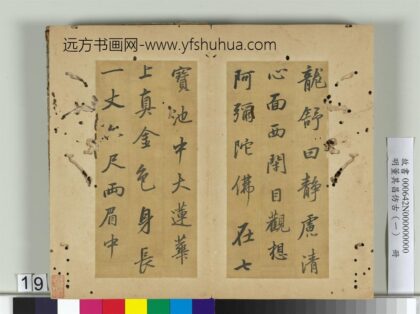 远方书画网-www.yfshuhua.com
龍舒曰靜慮清
心面西閉目觀想
阿彌陀佛在七
寶池中大蓮華
上真金色身長
一丈六尺兩眉中
故書 000642N000000000
明董其昌仿古(一) 冊
19